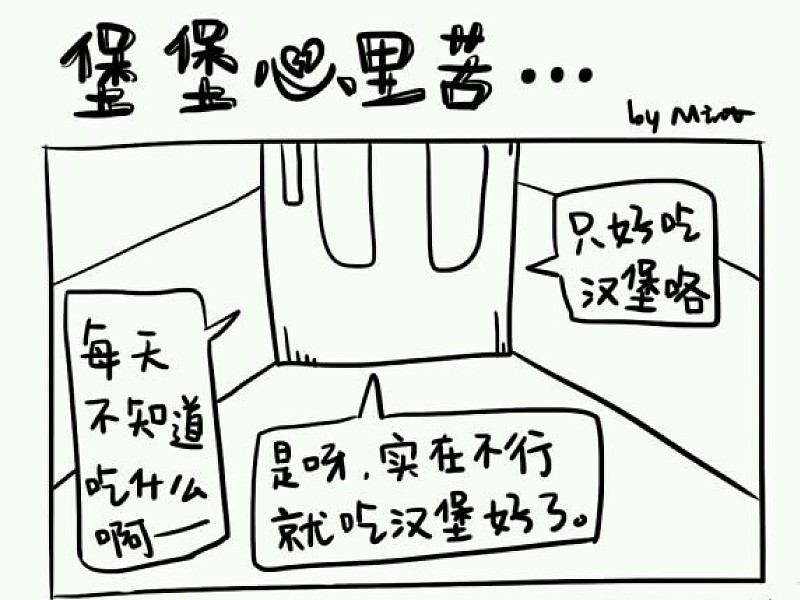 堡堡心里苦...
by Mina
每天
不知道
吃什么
啊——
是呀，实在不行
就吃汉堡好了。
只好吃
汉堡咯